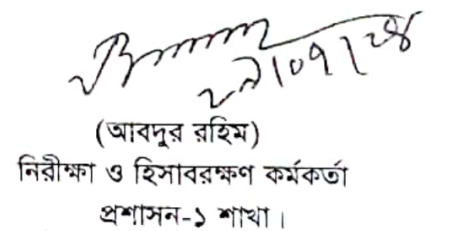 ২৯/০৭/২৪
(আবদুর রহিম)
নিরীক্ষা ও হিসাবরক্ষণ কর্মকর্তা
প্রশাসন-১ শাখা।